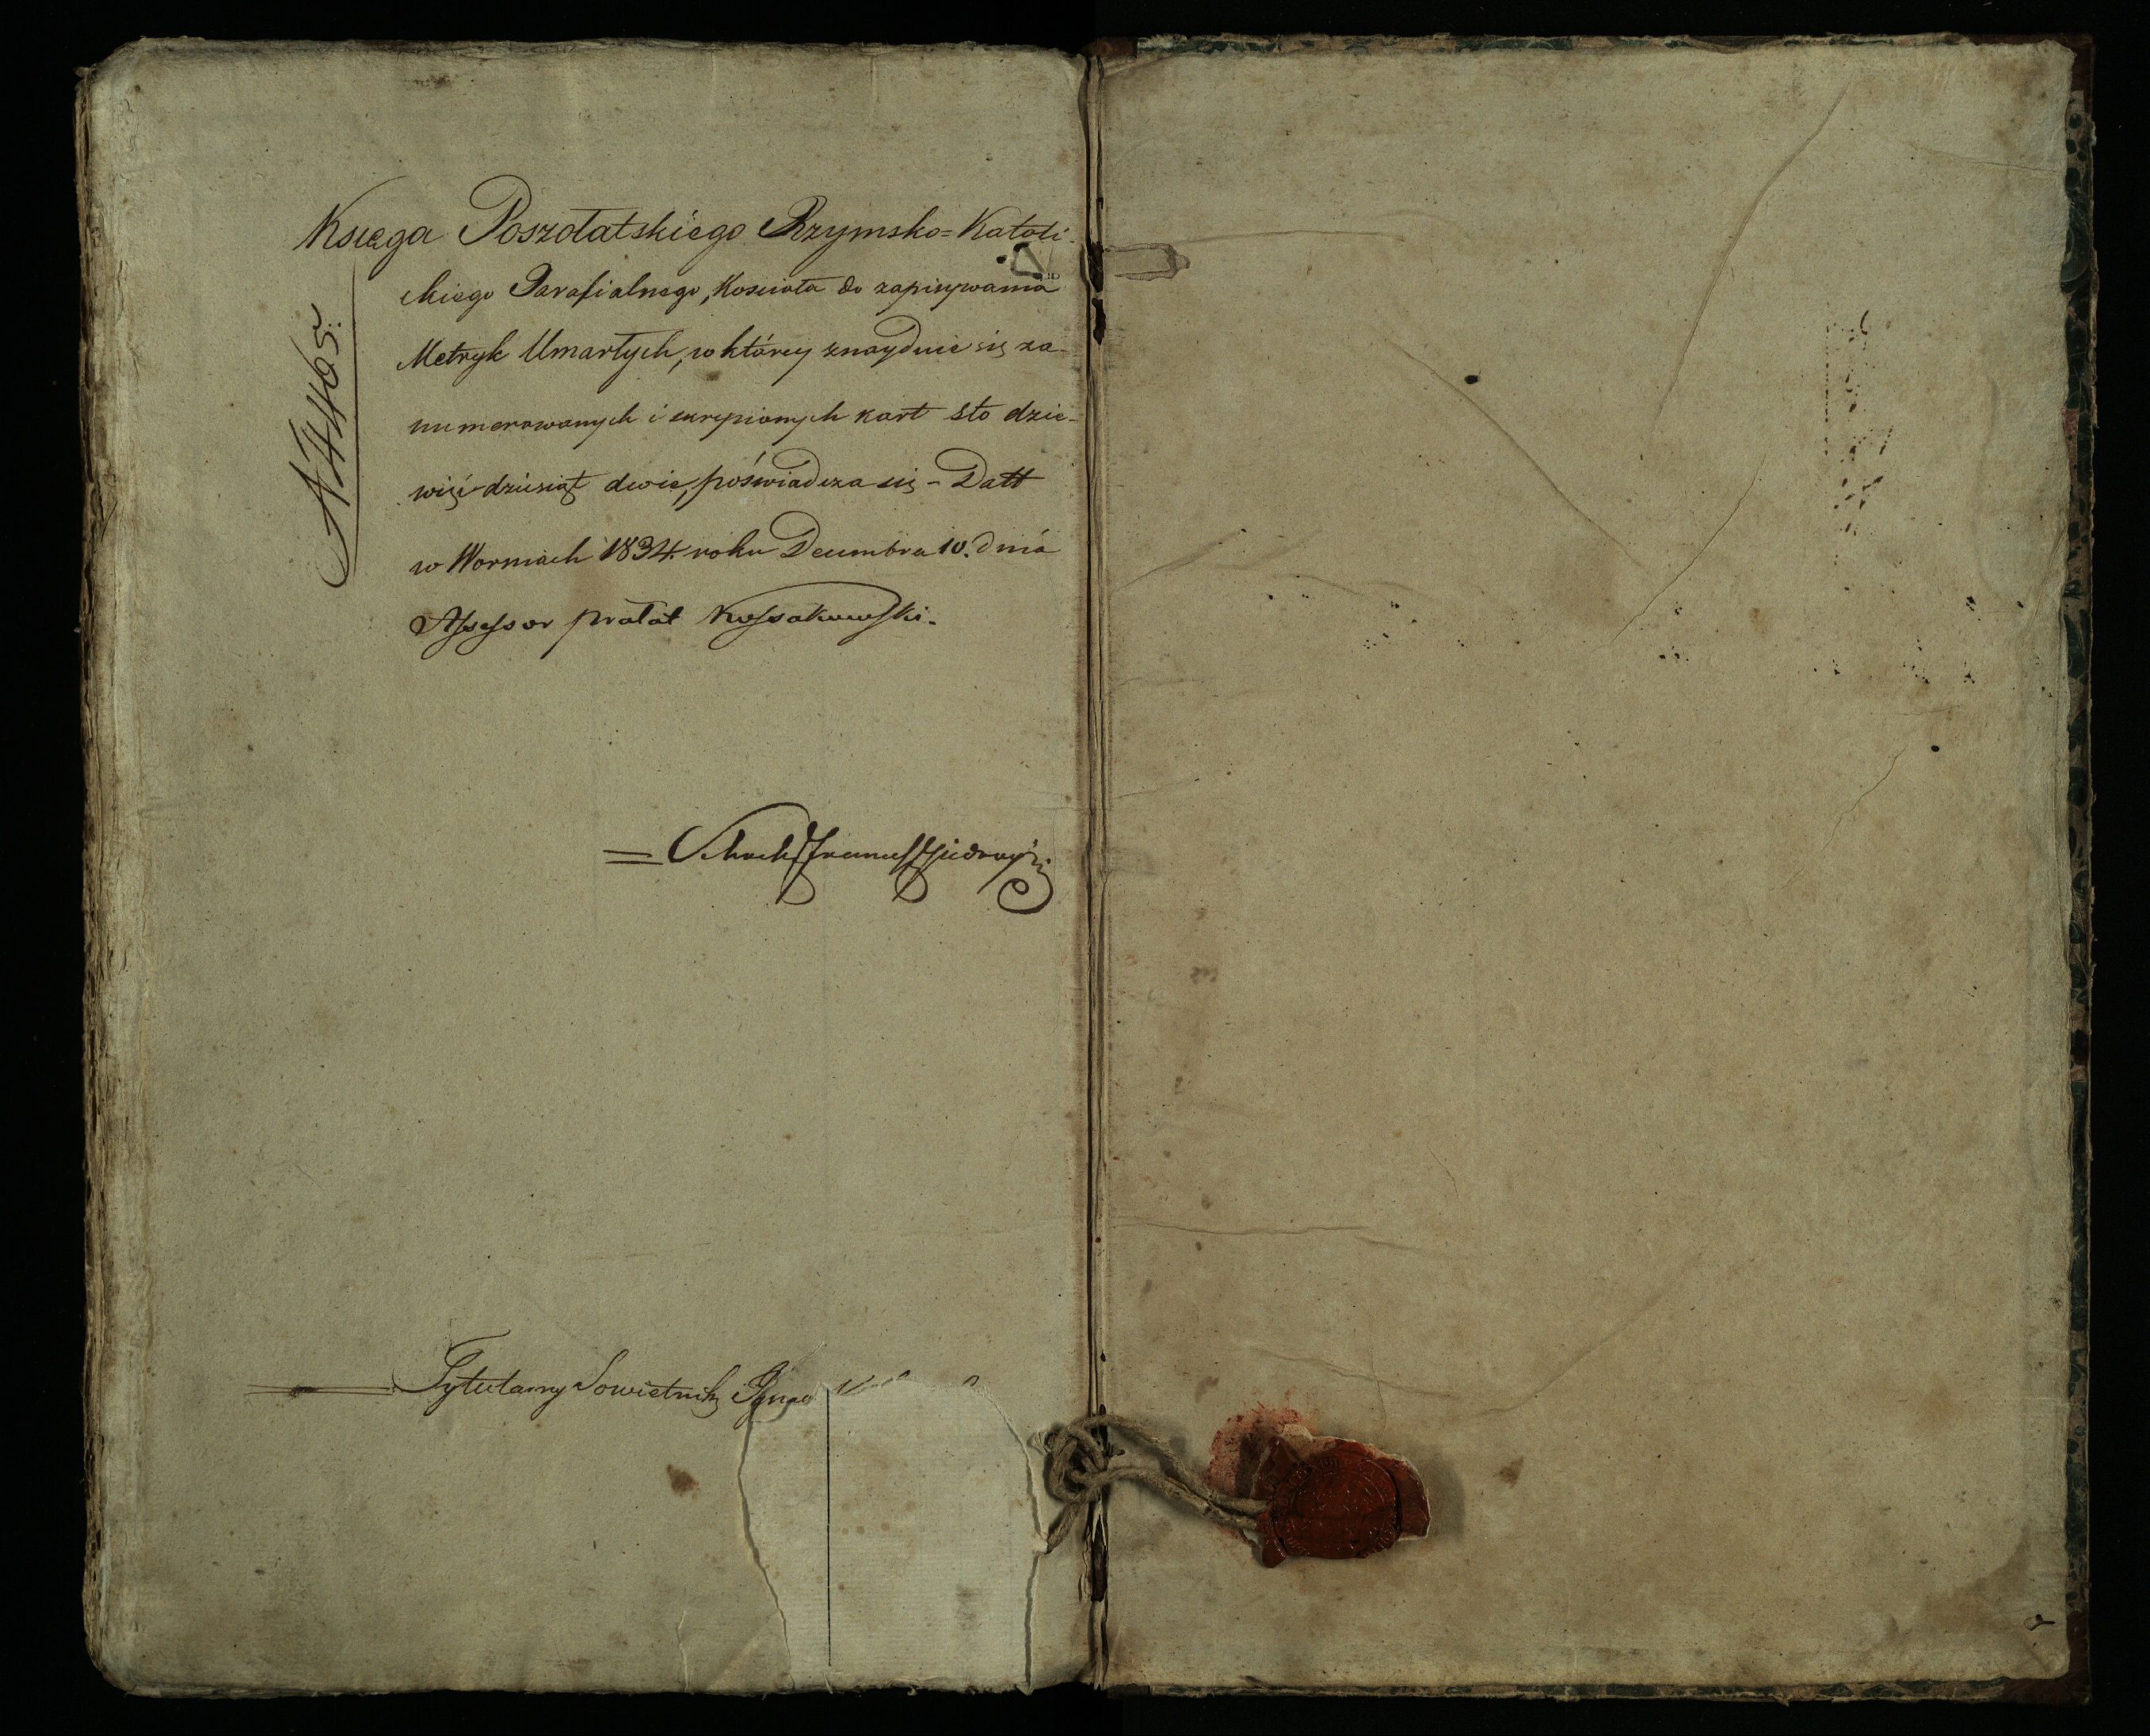 Księga Poszołatskiego Rzymsko=Katoli-
ckiego Parafialnego, Kościoła do zapisywania
Metryk Umarłych, w którey znayduie się za-
numerowanych i skrepionych kart sto dzie-
więćdziesiąt dwie, poświadcza się - Datt
w Worniach 1834. roku Decembra 10. dnia
Assessor prałat Kossakowski.
Tytularny Sowietnik